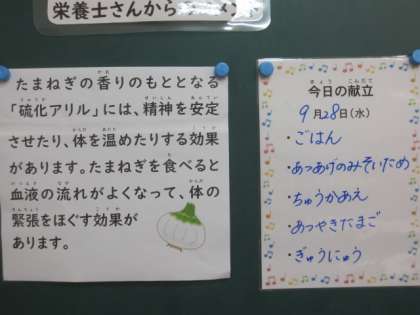 栄養士さんから
たまねぎの香りのもととなる
「硫化アリル」には、精神を安定
させたり、体を温めたりする効果
があります。たまねぎを食べると
血液の流れがよくなって、体の
緊張をほぐす効果が
あります。
今日の献立
9月28日(水)
・ごはん
・あつあげのみそいため
・ちゅうかあえ
・あつやきたまご
・ぎゅうにゅう